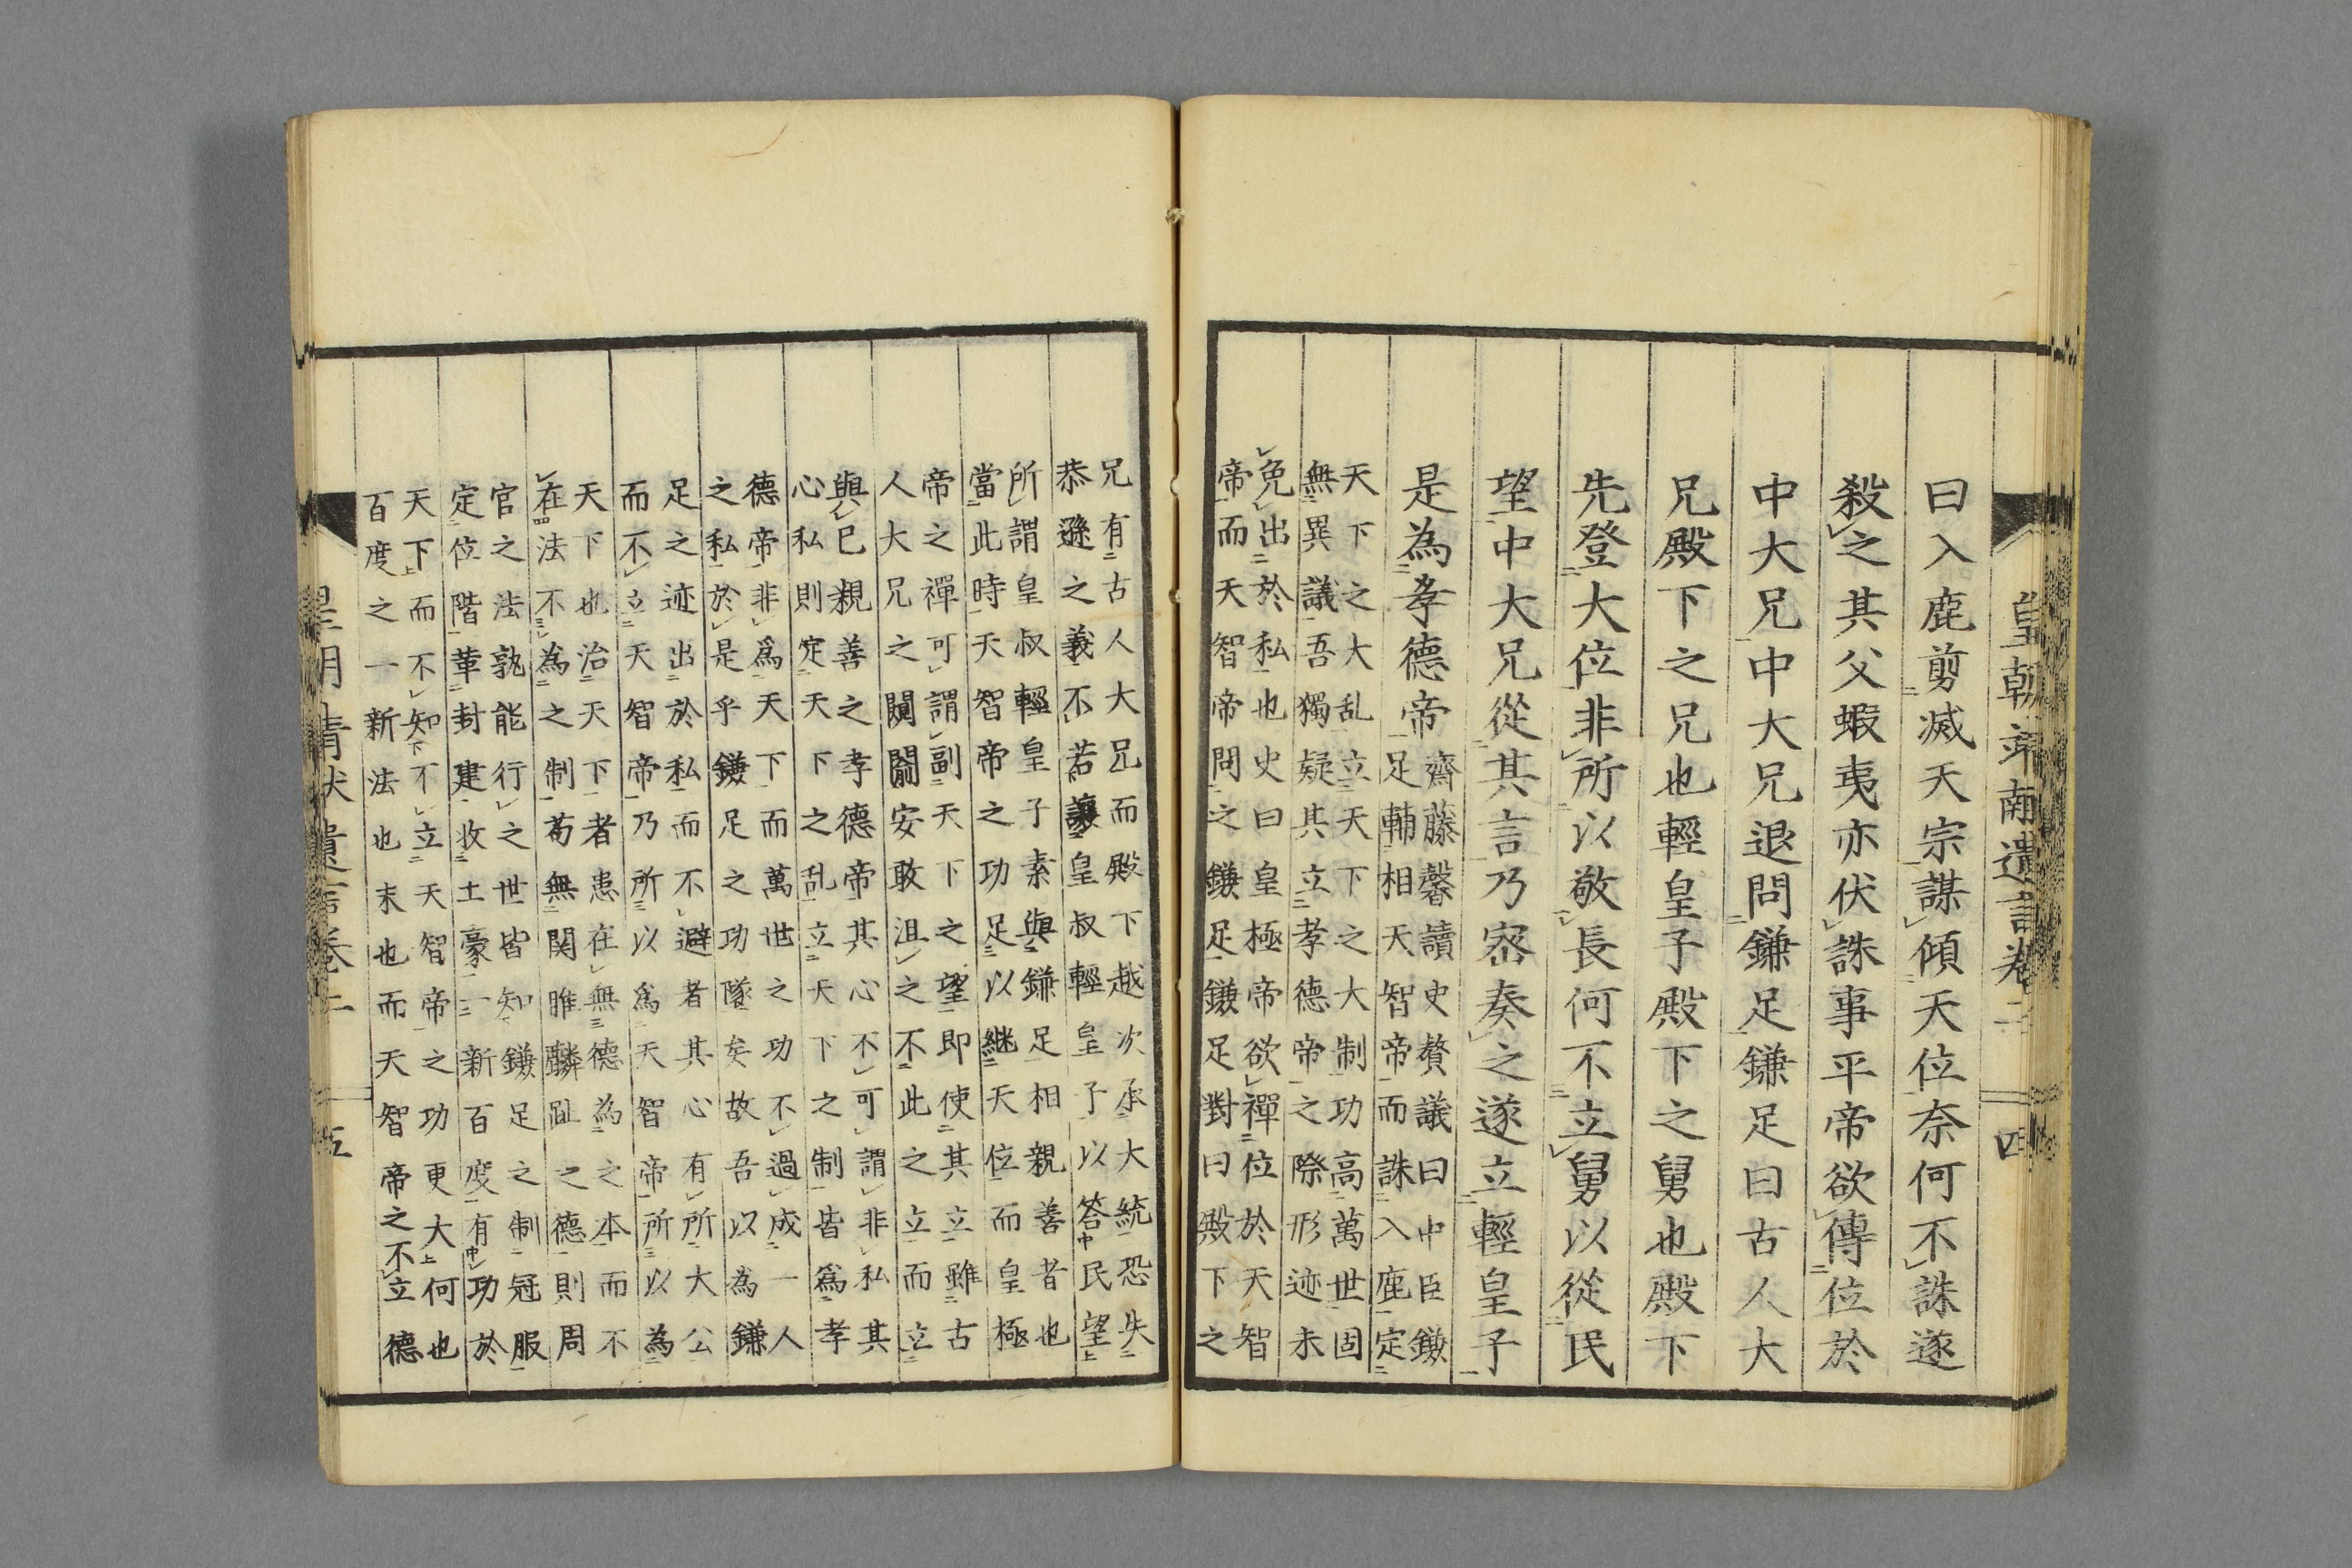 皇朝靖献遺言卷二 四
曰入鹿剪滅天宗謀傾天位奈何不誅遂
殺之其父蝦夷亦伏誅事平帝欲傳位於
中大兄中大兄退問鎌足鎌足曰古人大
兄殿下之兄也輕皇子殿下之舅也殿下
先登大位非所以敬長何不立舅以從民
望中大兄從其言乃密奏之遂立輕皇子
是為孝德帝
齋藤馨讀史贅議曰中臣鎌
足輔相天智帝而誅入鹿定
天下之大乱立天下之大制功高萬世固
無異議吾獨疑其立孝德帝之際形迹未
免出於私也史曰皇極帝欲禪位於天智
帝而天智帝問之鎌足鎌足對曰殿下之
兄有古人大兄而殿下越次承大統恐失
恭遜之義不若讓皇叔輕皇子以答民望
所謂皇叔輕皇子素與鎌足相親善者也
當此時天智帝之功足以継天位而皇極
帝之禪可謂副天下之望即使其立雖古
人大兄之安敢沮之不此之立而立
與已親善之孝德帝其心不可謂非私其
心私則定天下之乱立天下之制皆為孝
德帝非為天下而萬世之功不過成一人
之私於是乎鎌足之功隧矣故吾以為鎌
足之迹出於私而不避者其心有所大公
而不立天智帝乃所以為天智帝所以為
天下也治天下者患在無德為之本而不
在法不為之制苟無関雎麟趾之德則周
官之法孰能行之世皆知鎌足之制冠服
定位階革封建收土豪一新百度有功於
天下而不知不立天智帝之功更大何也
百度之一新法也末也而天智帝之不立德
五